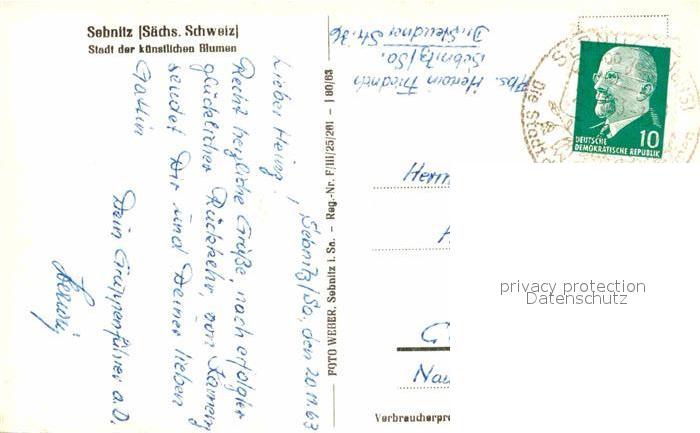 Sebnitz [Sächs. Schweiz]
Stadt der künstlichen Blumen
Sebnitz/Sa, den 20.11.63
Lieber Heinz!
Recht herzliche Grüße, nach erfolgter
glücklicher Rückkehr, von
sendet Dir und Deiner lieben
Gattin
Dein Gruppenführer a.D.
FOTO WEBER, Sebnitz i. Sa. – Reg.-Nr. F/III/25/261 – I 80/63
Abs. Friedrich
Sebnitz/Sa.
Str. 36
SEBNITZ
Die Stadt
DEUTSCHE
DEMOKRATISCHE REPUBLIK
10
Herrn
privacy protection
Datenschutz
Verbraucherpre